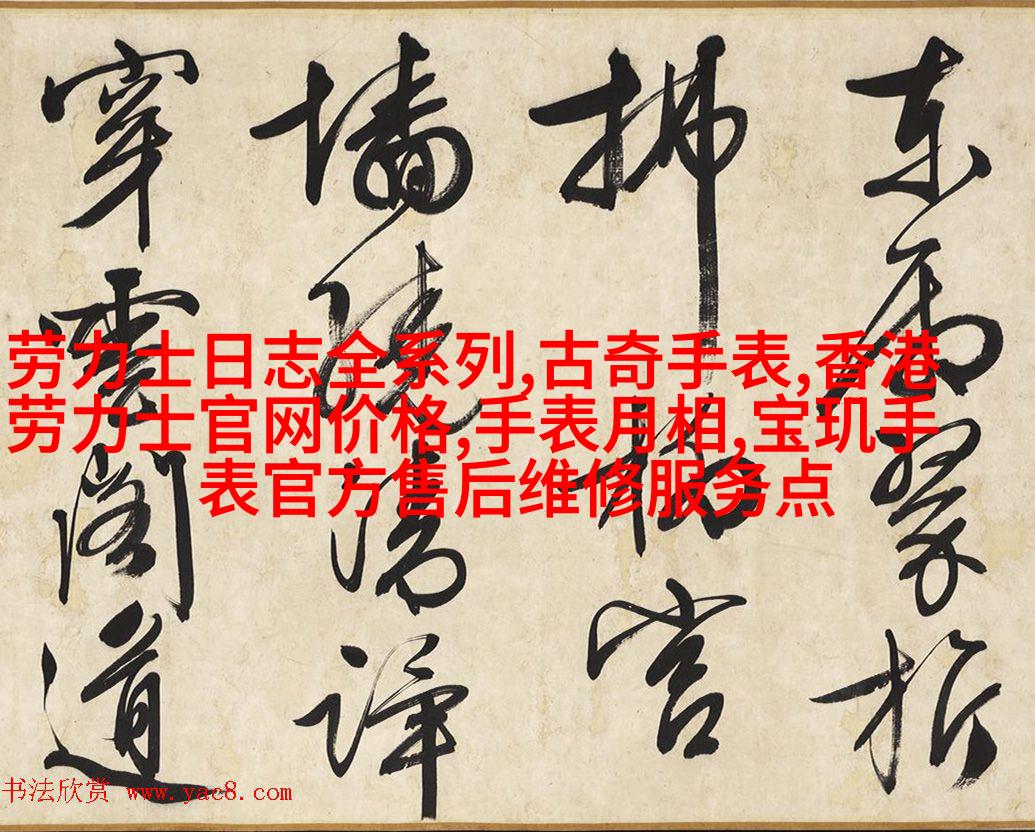 東翠
拂宮
墻繞清
穿雲閣道
劳力士日志全系列,古奇手表,香港
劳力士官网价格,手表月相,宝玑手
表官方售后维修服务点
书法欣赏 www.yac8.com